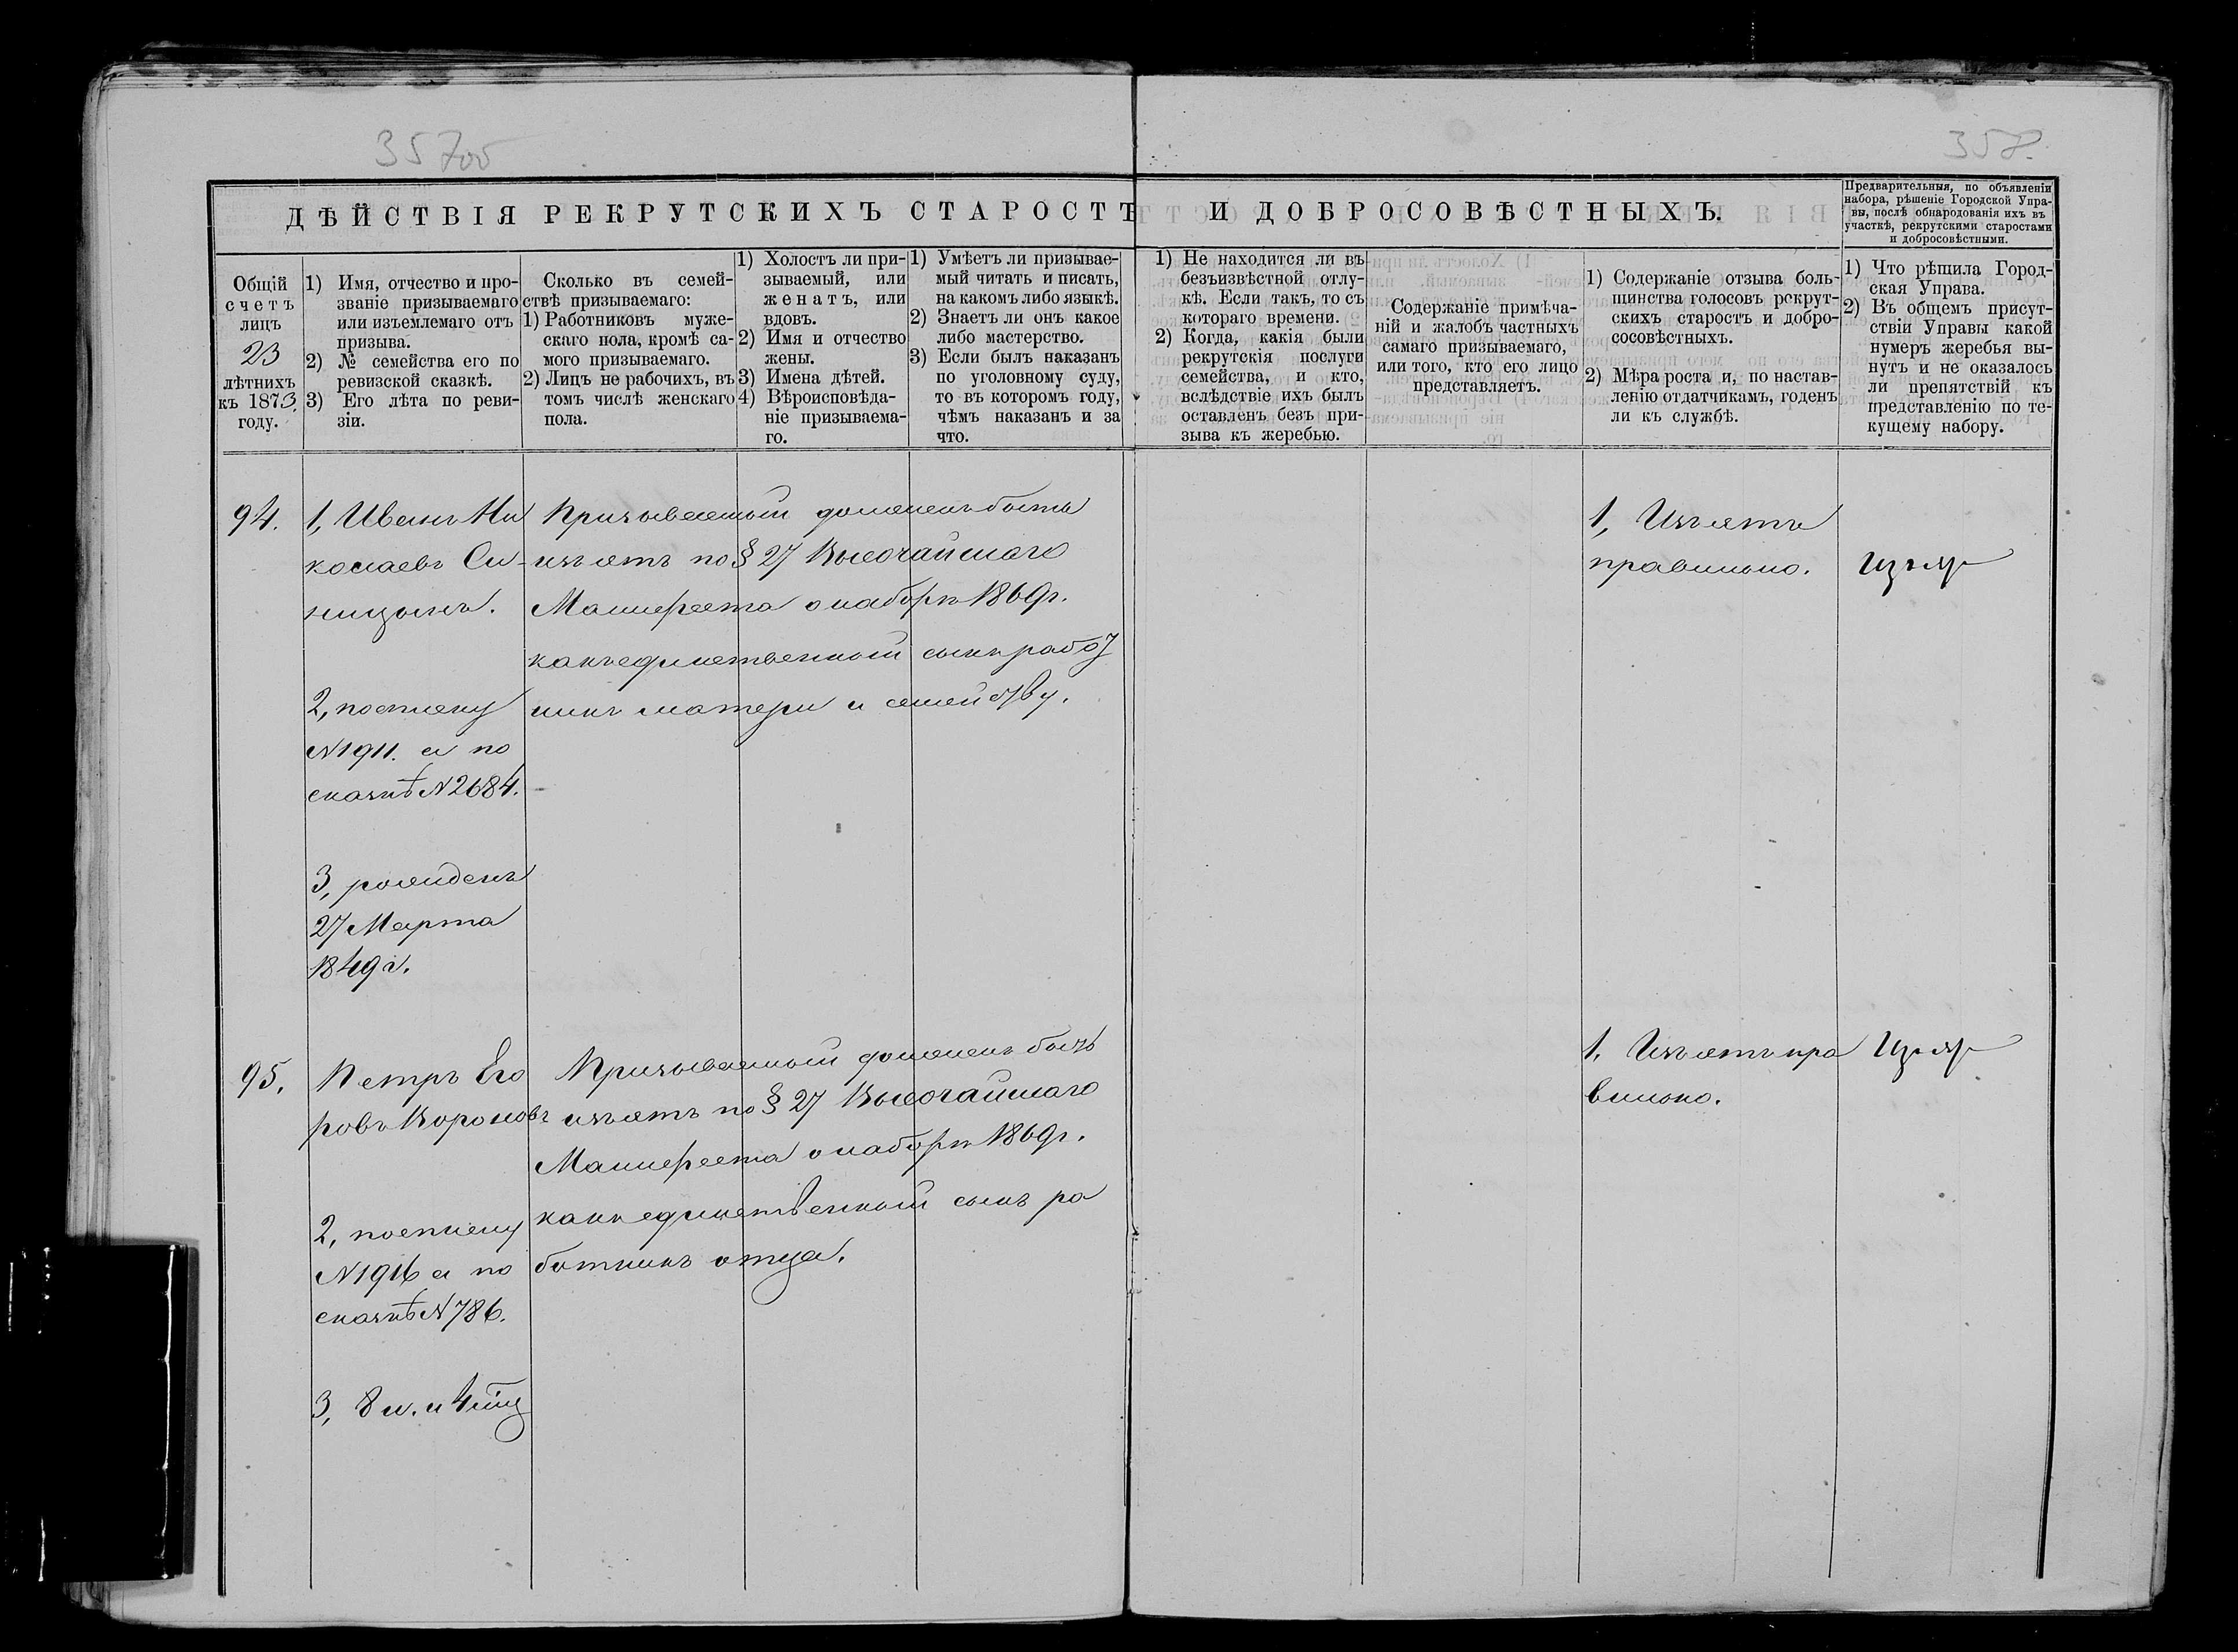 357об
358.
ДѢЙСТВІЯ РЕКРУТСКИХЪ СТАРОСТЪ И ДОБРОСОВѢСТНЫХЪ.
Предварительныя, по объявленіи
набора, рѣшеніе Городской Упра-
вы, послѣ обнародованія ихъ въ
участкѣ, рекрутскими старостами
и добросовѣстными.
Общій
счетъ
лицъ
23
лѣтнихъ
къ 1873.
году.
1) Имя, отчество и про-
званіе призываемаго
или изъемлемаго отъ
призыва.
2) № семейства его по
ревизской сказкѣ.
3) Его лѣта по реви-
зіи.
Сколько въ семей-
ствѣ призываемаго:
1) Работниковъ муже-
скаго пола, кромѣ са-
мого призываемаго.
2) Лицъ не рабочихъ, въ
томъ числѣ женскаго
пола.
1) Холостъ ли при-
зываемый, или
женатъ, или
вдовъ.
2) Имя и отчество
жены.
3) Имена дѣтей.
4) Вѣроисповѣда-
ніе призываема-
го.
1) Умѣетъ ли призывае-
мый читать и писать,
на какомъ либо языкѣ.
2) Знаетъ ли онъ какое
либо мастерство.
3) Если былъ наказанъ
по уголовному суду,
то въ которомъ году,
чѣмъ наказанъ и за
что.
1) Не находится ли въ
безъизвѣстной отлу-
кѣ. Если такъ, то съ
котораго времени.
2) Когда, какія были
рекрутскія послуги
семейства, и кто,
вслѣдствіе ихъ былъ
оставленъ безъ при-
зыва къ жеребью.
Содержаніе примѣча-
ній и жалобъ частныхъ
самаго призываемаго,
или того, кто его лицо
представляетъ.
1) Содержаніе отзыва боль-
шинства голосовъ рекрут-
скихъ старостъ и добро-
сосовѣстныхъ.
2) Мѣра роста и, по настав-
ленію отдатчикамъ, годенъ
ли къ службѣ.
1) Что рѣшила Город-
ская Управа.
2) Въ общемъ присут-
ствіи Управы какой
нумеръ жеребья вы-
нутъ и не оказалось
ли препятствій къ
представленію по те-
кущему набору.
94.
1, Иванъ Ни
колаевъ Си-
ницынъ.
2, посписку
N1911. а по
сказкѣ N2684.
3, рожденъ
27 Марта
1849 г.
Призываемый долженъ быть
изъятъ по § 27 Высочайшаго
Манифеста о наборѣ 1869г.
какъ единственный сынъ работ
никъ матери и семейству.
1, Изъятъ
правильно.
Изъят
95.
Петръ Его
ровъ Вороновъ
2, посписку
N1916 а по
сказкѣ N786.
3, 8 л. и 4 мѣс
Призываемый долженъ быть
изъятъ по § 27 Высочайшаго
Манифеста о наборѣ 1869г.
какъ единственный сынъ ра
ботникъ отца.
1. Изъятъ пра
вильно.
Изъят